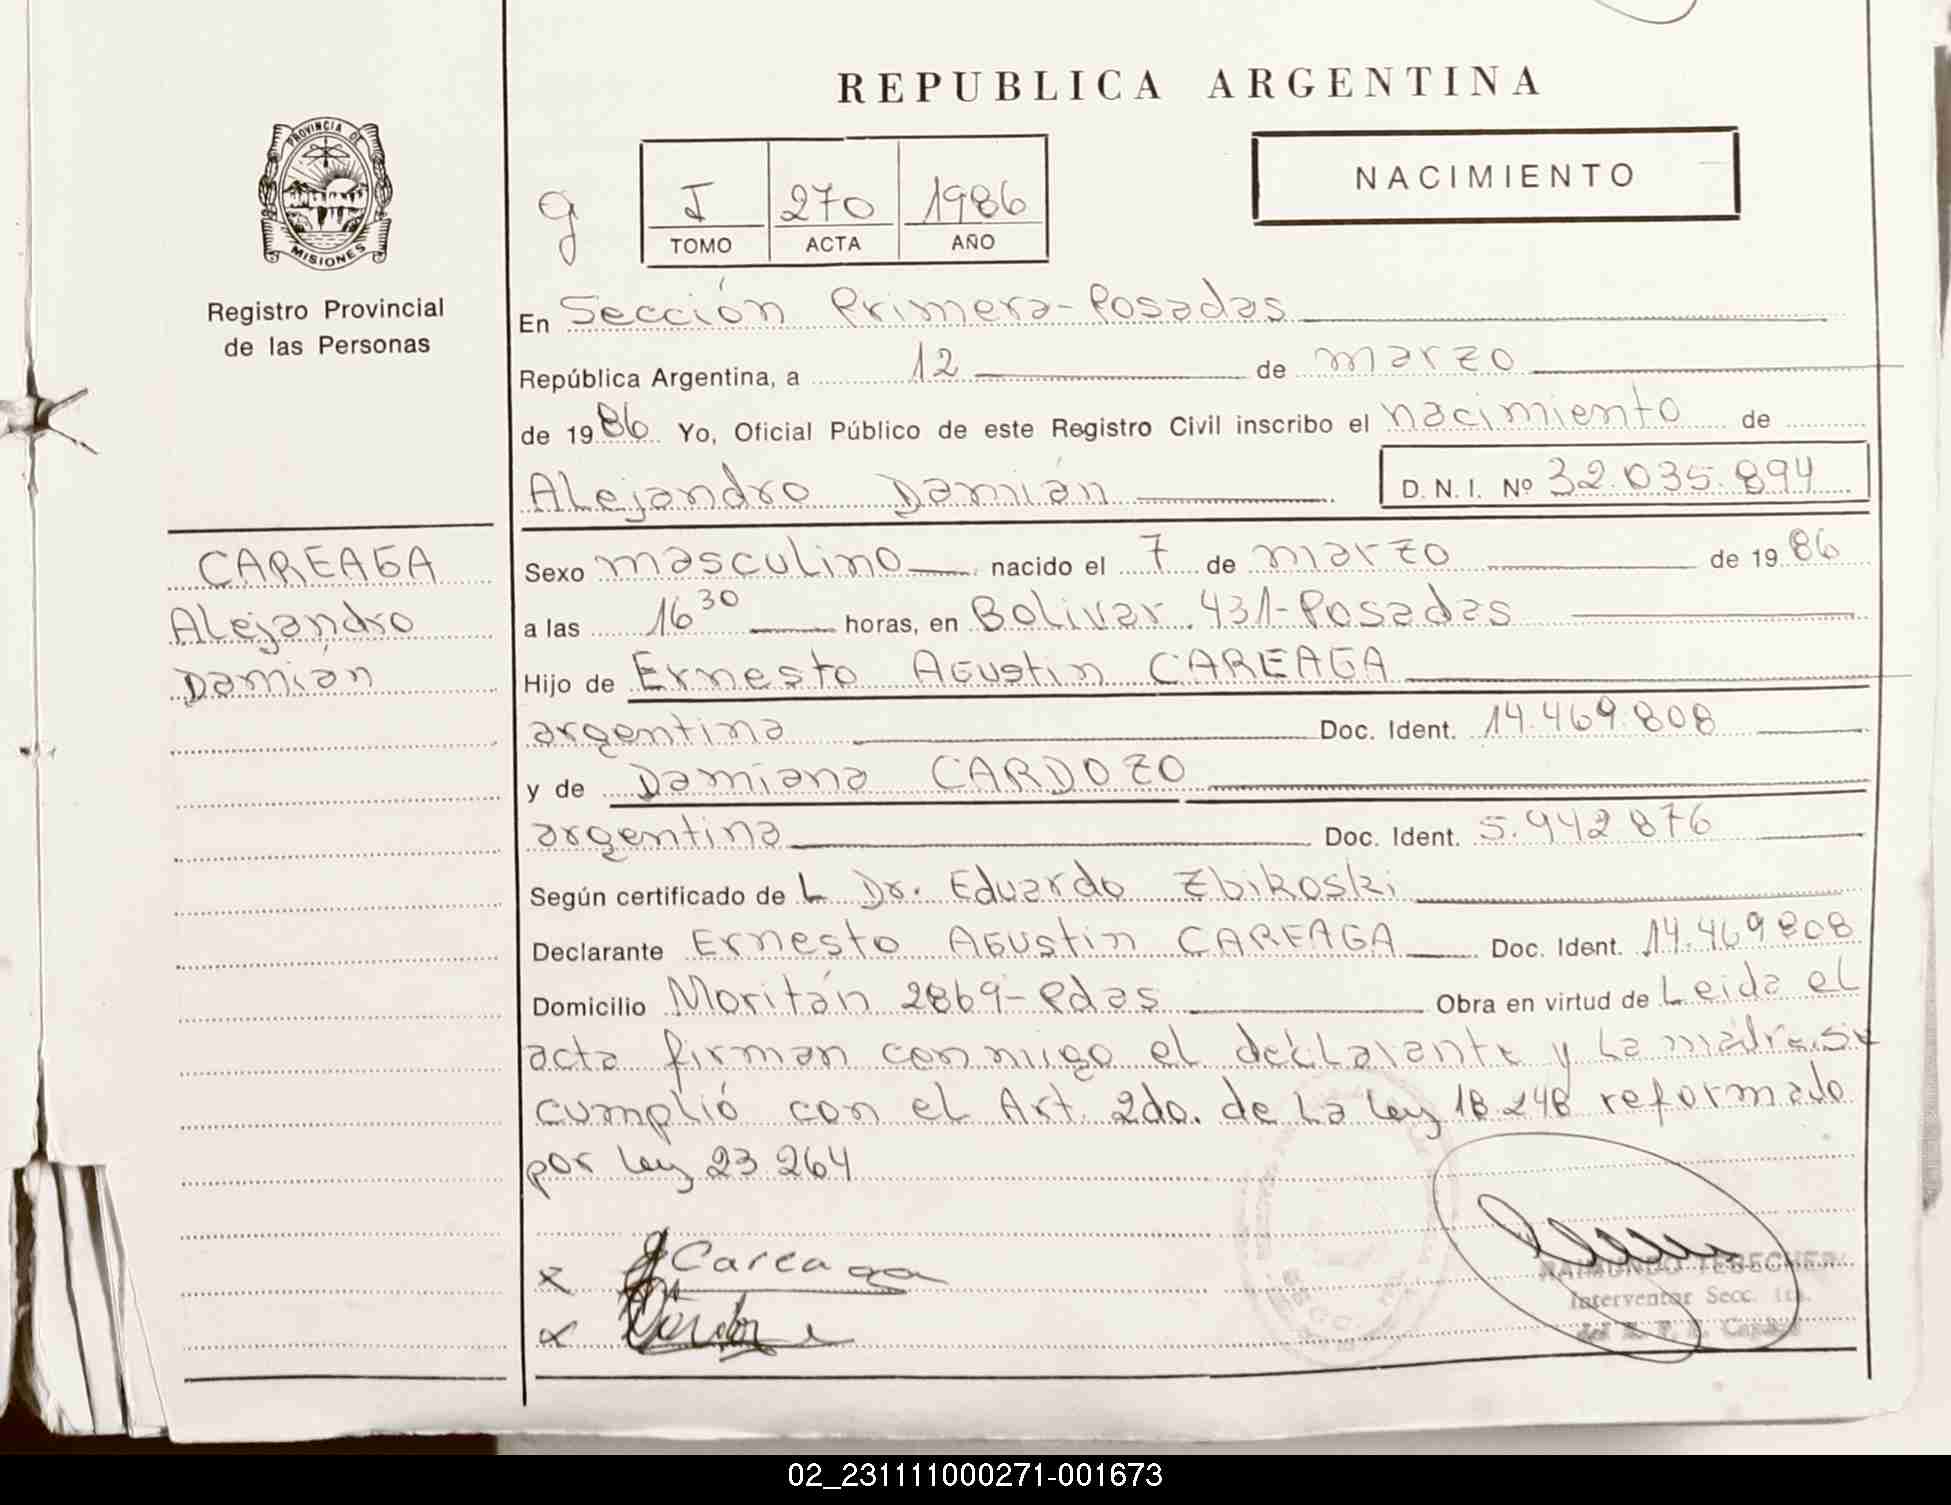 REPUBLICA ARGENTINA
PROVINCIA DE
MISIONES
Registro Provincial
de las Personas
g
I 270 1986
TOMO ACTA AÑO
NACIMIENTO
En Sección Primera-Posadas
República Argentina, a 12 de marzo
de 1986 Yo, Oficial Público de este Registro Civil inscribo el nacimiento de
Alejandro Damián D.N.I. Nº 32.035.894
CAREAGA
Alejandro
Damián
Sexo masculino nacido el 7 de marzo de 1986
a las 16 30 horas, en Bolivar 431-Posadas
Hijo de Ernesto Agustin CAREAGA
argentina Doc. Ident. 14.469.808
y de Damiana CARDOZO
argentina Doc. Ident. 5.942876
Según certificado de L Dr. Eduardo Zbikoski
Declarante Ernesto Agustin CAREAGA Doc. Ident. 14.469808
Domicilio Moritán 2869-Pdas Obra en virtud de Leida el
acta firman conmigo el declarante y la madre.se
cumplió con el Art. 2do. de la ley 18.248 reformado
por ley 23.264
x Careaga
x
RAIMUNDO TEBECHERI
Interventor Secc. 1ra.
del R. P. P. Capital
02_231111000271-001673